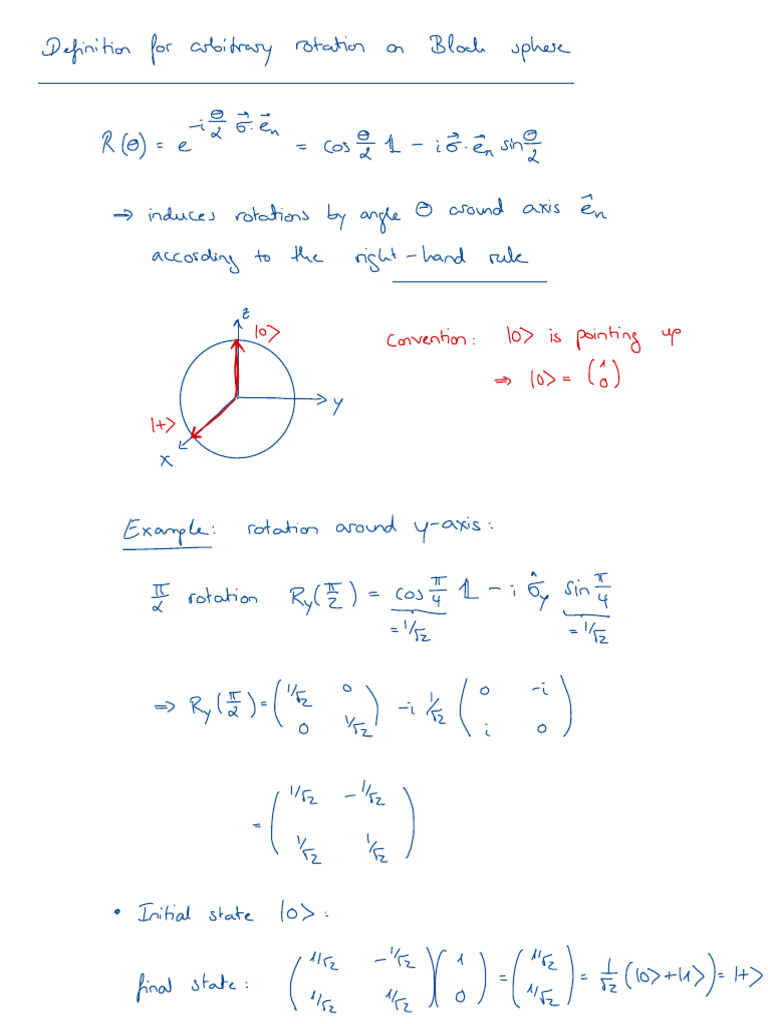 Definition for arbitrary rotation on Bloch sphere
R(θ) = e^{-i θ/2 σ⃗·e⃗_n} = cos θ/2 𝟙 - i σ⃗·e⃗_n sin θ/2
→ induces rotations by angle θ around axis e⃗_n
according to the right-hand rule
z
|0>
Convention: |0> is pointing up
⇒ |0> = (1 0)
y
|+>
x
Example: rotation around y-axis:
π/2 rotation R_y(π/2) = cos π/4 𝟙 - i σ̂_y sin π/4
= 1/√2 = 1/√2
⇒ R_y(π/2) = (1/√2 0 ; 0 1/√2) - i 1/√2 (0 -i ; i 0)
= (1/√2 -1/√2 ; 1/√2 1/√2)
• Initial state |0>:
final state: (1/√2 -1/√2 ; 1/√2 1/√2)(1 ; 0) = (1/√2 ; 1/√2) = 1/√2 (|0>+|1>) = |+>